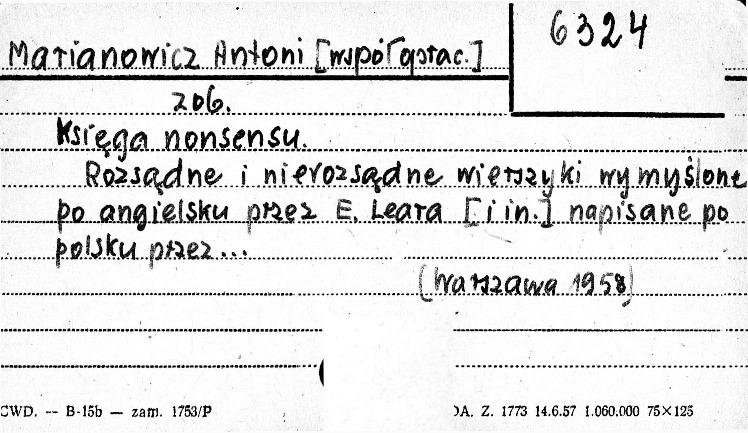 6324
Marianowicz Antoni [współoprac.]
zob.
Księga nonsensu.
Rozsądne i nierozsądne wierszyki wymyślone
po angielsku przez E. Leara [i in.] napisane po
polsku przez...
(Warszawa 1958)
CWD. -- B-15b — zam. 1753/P
DA. Z. 1773 14.6.57 1.060.000 75×125